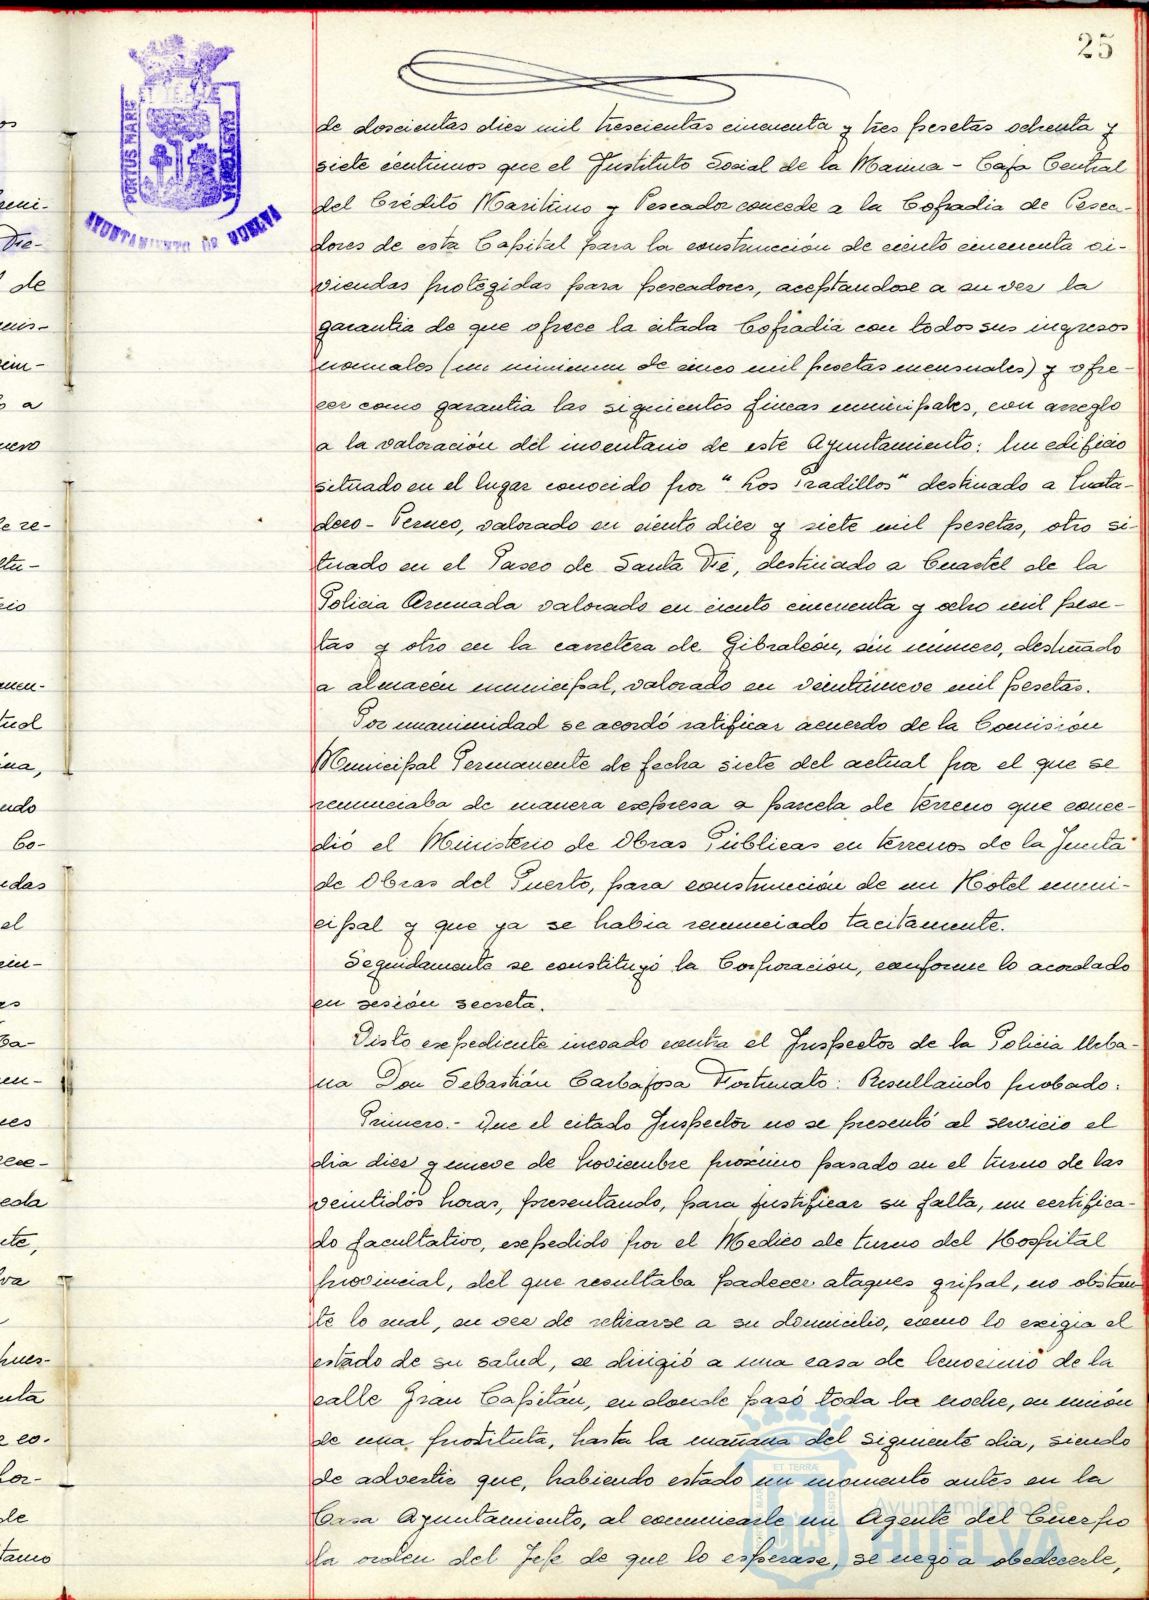 25
PORTUS MARIS
ET TERRAE
CUSTODIA
AYUNTAMIENTO DE HUELVA
de doscientas diez mil trescientas cincuenta y tres pesetas ochenta y
siete centimos que el Instituto Social de la Marina - Caja Central
del Crédito Maritimo y Pescador concede a la Cofradia de Pesca-
dores de esta Capital para la construcción de ciento cincuenta vi-
viendas protegidas para pescadores, aceptandose a su vez la
garantia de que ofrece la citada Cofradia con todos sus ingresos
normales (un minimum de cinco mil pesetas mensuales) y ofre-
cer como garantia las siguientes fincas municipales, con arreglo
a la valoración del inventario de este Ayuntamiento: Un edificio
situado en el lugar conocido por "Los Pradillos" destinado a Mata-
dero- Perneo, valorado en ciento diez y siete mil pesetas, otro si-
tuado en el Paseo de Santa Fé, destinado a Cuartel de la
Policia Armada valorado en ciento cincuenta y ocho mil pese-
tas y otro en la carretera de Gibraleón, sin número, destinado
a almacén municipal, valorado en veintinueve mil pesetas.
Por unanimidad se acordó ratificar acuerdo de la Comisión
Municipal Permanente de fecha siete del actual por el que se
renunciaba de manera expresa a parcela de terreno que conce-
dió el Ministerio de Obras Públicas en terrenos de la Junta
de Obras del Puerto, para construcción de un Hotel muni-
cipal y que ya se habia renunciado tacitamente.
Seguidamente se constituyó la Corporación, conforme lo acordado
en sesión secreta.
Visto expediente incoado contra el Inspector de la Policia Urba-
na Don Sebastián Carbajosa Fortunato: Resultando probado:
Primero.- Que el citado Inspector no se presentó al servicio el
dia diez y nueve de Noviembre próximo pasado en el turno de las
veintidós horas, presentando, para justificar su falta, un certifica-
do facultativo, expedido por el Medico de turno del Hospital
Provincial, del que resultaba padecer ataques gripal, no obstan-
te lo cual, en vez de retirarse a su domicilio, como lo exigia el
estado de su salud, se dirigió a una casa de lenocinio de la
calle Gran Capitán, en donde pasó toda la noche, en unión
de una prostituta, hasta la mañana del siguiente dia, siendo
de advertir que, habiendo estado un momento antes en la
Casa Ayuntamiento, al comunicarle un Agente del Cuerpo
la orden del Jefe de que lo esperase, se negó a obedecerle,
Ayuntamiento de
HUELVA